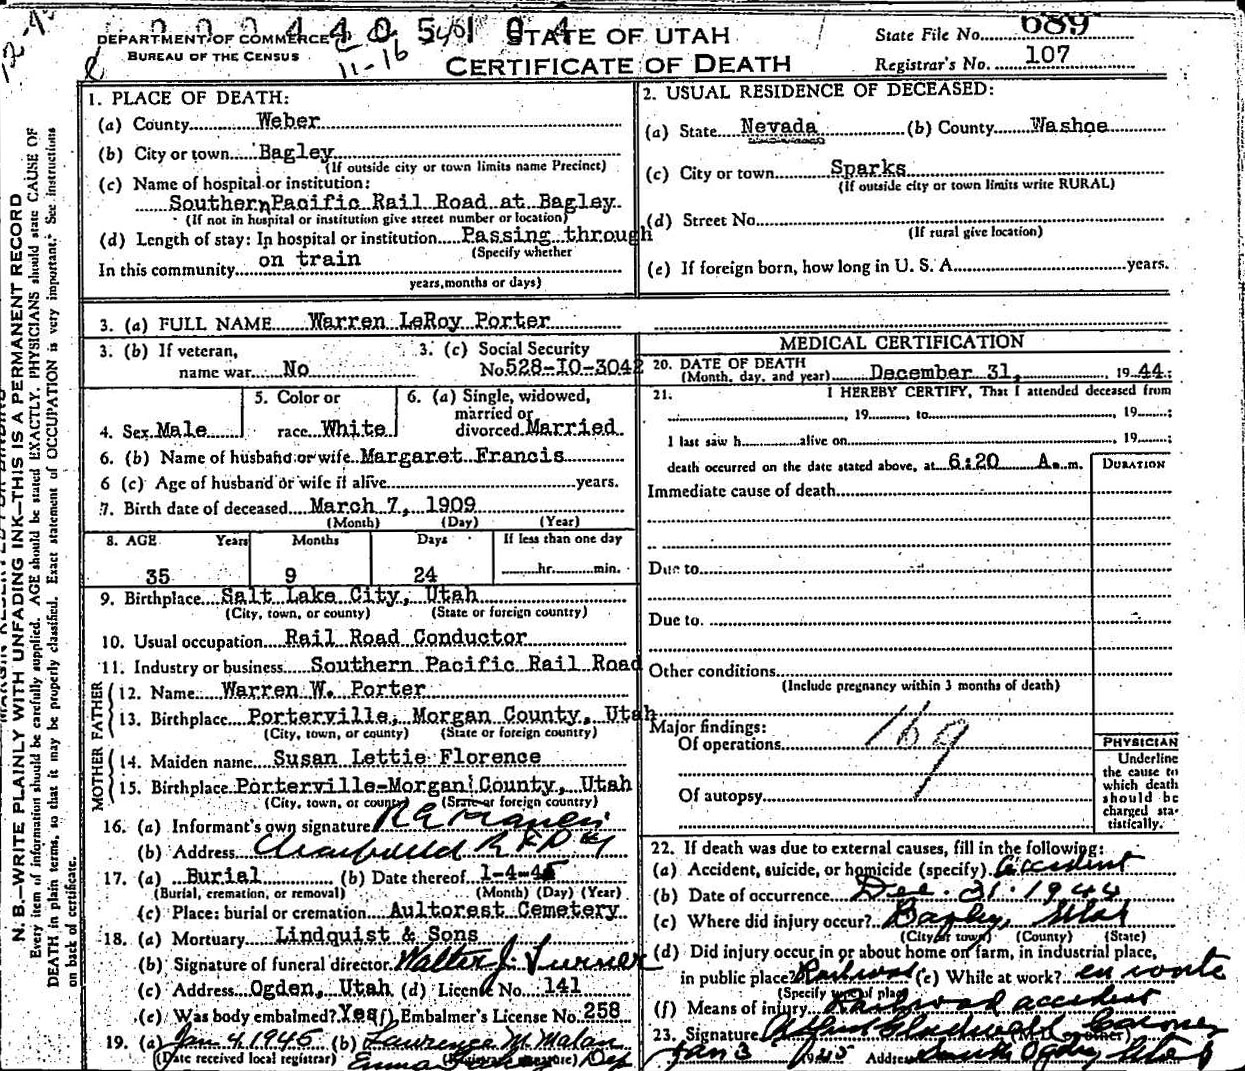 DEPARTMENT OF COMMERCE
BUREAU OF THE CENSUS
11-16
STATE OF UTAH
CERTIFICATE OF DEATH
State File No. 689
Registrar's No. 107
N. B.—WRITE PLAINLY WITH UNFADING INK—THIS IS A PERMANENT RECORD
Every item of information should be carefully supplied. AGE should be stated EXACTLY. PHYSICIANS should state CAUSE OF
DEATH in plain terms, so that it may be properly classified. Exact statement of OCCUPATION is very important. See instructions
on back of certificate.
1. PLACE OF DEATH:
(a) County Weber
(b) City or town Bagley
(If outside city or town limits name Precinct)
(c) Name of hospital or institution:
Southern Pacific Rail Road at Bagley
(If not in hospital or institution give street number or location)
(d) Length of stay: In hospital or institution Passing through
(Specify whether
In this community on train
years, months or days)
2. USUAL RESIDENCE OF DECEASED:
(a) State Nevada (b) County Washoe
(c) City or town Sparks
(If outside city or town limits write RURAL)
(d) Street No.
(If rural give location)
(e) If foreign born, how long in U. S. A. years.
3. (a) FULL NAME Warren LeRoy Porter
3. (b) If veteran, name war No
3. (c) Social Security No. 528-10-3042
4. Sex Male
5. Color or race White
6. (a) Single, widowed, married or divorced Married
6. (b) Name of husband or wife Margaret Francis
6 (c) Age of husband or wife if alive years.
7. Birth date of deceased March 7, 1909
(Month) (Day) (Year)
8. AGE Years Months Days If less than one day
35 9 24 hr. min.
9. Birthplace Salt Lake City, Utah
(City, town, or county) (State or foreign country)
10. Usual occupation Rail Road Conductor
11. Industry or business Southern Pacific Rail Road
FATHER
12. Name Warren W. Porter
13. Birthplace Porterville, Morgan County, Utah
(City, town, or county) (State or foreign country)
MOTHER
14. Maiden name Susan Lettie Florence
15. Birthplace Porterville-Morgan County, Utah
(City, town, or county) (State or foreign country)
16. (a) Informant's own signature R G Francis
(b) Address Clearfield R F D
17. (a) Burial (b) Date thereof 1-4-45
(Burial, cremation, or removal) (Month) (Day) (Year)
(c) Place: burial or cremation Aultorest Cemetery
18. (a) Mortuary Lindquist & Sons
(b) Signature of funeral director Walter J. Turner
(c) Address Ogden, Utah (d) License No. 141
(e) Was body embalmed? Yes (f) Embalmer's License No. 258
19. (a) Jan 4 1945 (b) Lawrence M Malan
(Date received local registrar) (Registrar's signature)
Emma Dep
MEDICAL CERTIFICATION
20. DATE OF DEATH
(Month, day, and year) December 31, 1944;
21. I HEREBY CERTIFY, That I attended deceased from
, 19 , to , 19 ;
I last saw h alive on , 19 ;
death occurred on the date stated above, at 6:20 A. m.
DURATION
Immediate cause of death
Due to
Due to
Other conditions
(Include pregnancy within 3 months of death)
Major findings:
Of operations
169
Of autopsy
PHYSICIAN
Underline
the cause to
which death
should be
charged sta-
tistically.
22. If death was due to external causes, fill in the following:
(a) Accident, suicide, or homicide (specify) Accident
(b) Date of occurrence Dec. 31. 1944
(c) Where did injury occur? Bagley, Utah
(City or town) (County) (State)
(d) Did injury occur in or about home on farm, in industrial place,
in public place? Railroad (e) While at work? en route
(Specify type of place)
(f) Means of injury Railroad accident
23. Signature (M.D. or other)
Jan 3 1945 Address Ogden Utah